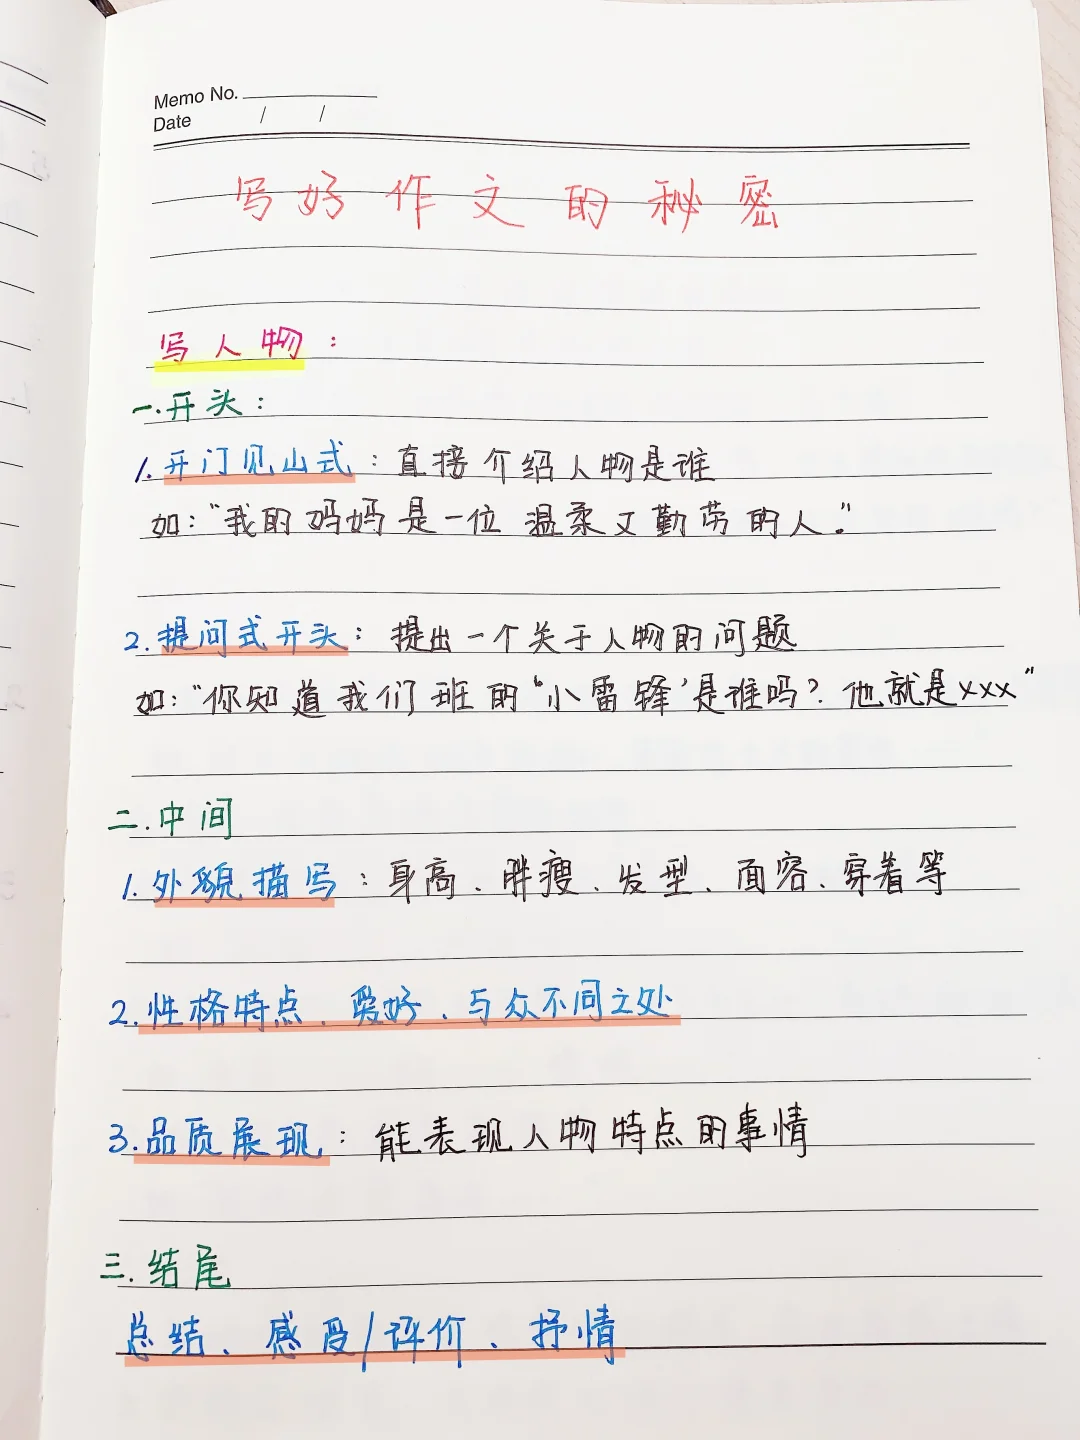 Memo No.
Date / /
写好作文的秘密
写人物：
一.开头：
1.开门见山式：直接介绍人物是谁
如："我的妈妈是一位温柔又勤劳的人."
2.提问式开头：提出一个关于人物的问题
如："你知道我们班的'小雷锋'是谁吗？他就是xxx"
二.中间
1.外貌描写：身高、胖瘦、发型、面容、穿着等
2.性格特点、爱好、与众不同之处
3.品质展现：能表现人物特点的事情
三.结尾
总结、感受/评价、抒情